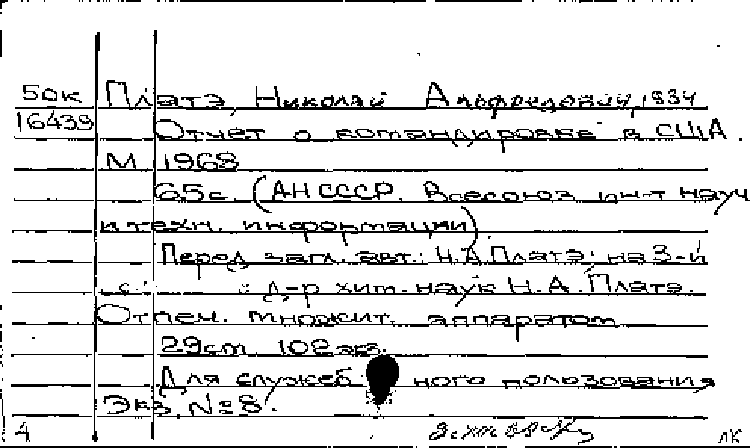 50к Платэ, Николай Альфредович, 1934
16439 Отчет о командировке в США.
М. 1968
65с. (АН СССР. Всесоюз. ин-т науч.
и техн. информации)
Перед загл. авт.: Н.А. Платэ; на 3-й
с.: д-р хим. наук Н.А. Платэ.
Отпеч. множит. аппаратом
29см. 102 экз.
Для служебного пользования
Экз. №8.
4 ЛК